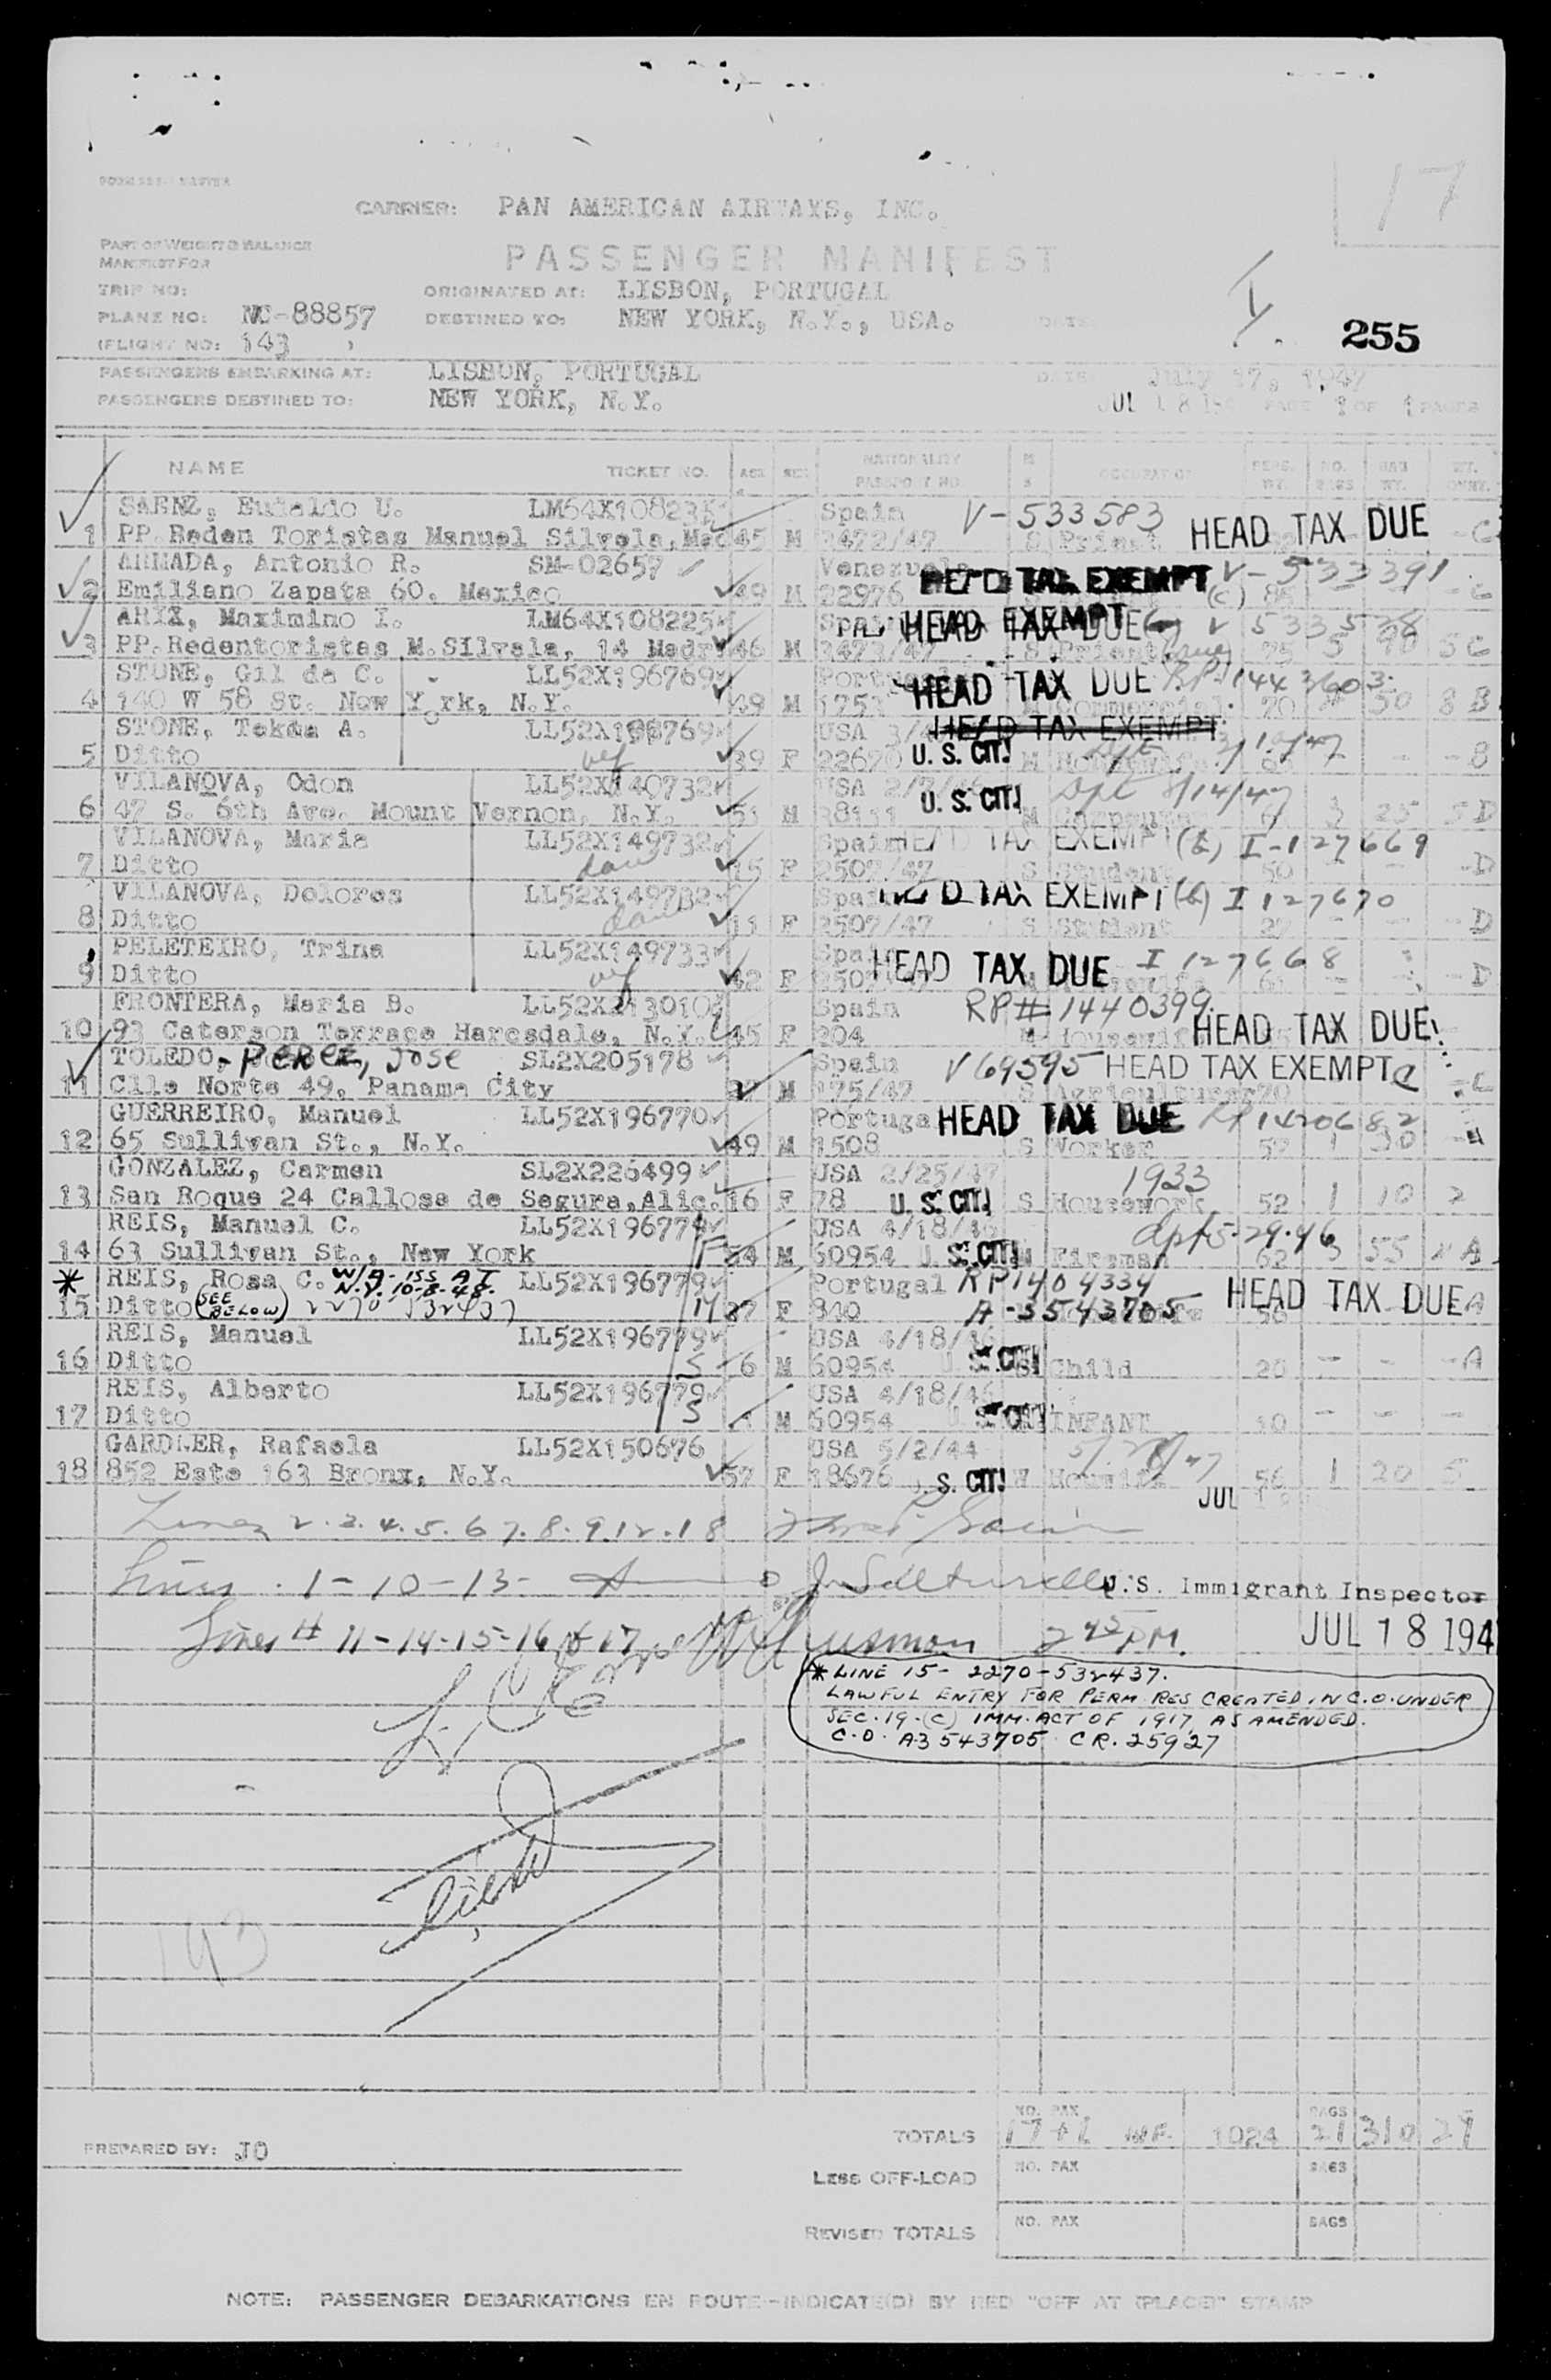 17
CARRIER: PAN AMERICAN AIRWAYS, INC.
PART OF WEIGHT & BALANCE
MANIFEST FOR
PASSENGER MANIFEST
TRIP NO:
ORIGINATED AT: LISBON, PORTUGAL
PLANE NO: NC-88857
DESTINED TO: NEW YORK, N.Y., USA.
255
(FLIGHT NO: 143 )
PASSENGERS EMBARKING AT: LISBON, PORTUGAL
DATE: July 17, 1947
PASSENGERS DESTINED TO: NEW YORK, N.Y.
JUL 18 PAGE 1 OF 1 PAGES
NAME TICKET NO. AGE SEX NATIONALITY PASSPORT NO M S OCCUPATION PERS. WT. NO. BAGS BAG WT. WT.
SAENZ, Eudaldo U. LM64X108235 Spain V-533583 HEAD TAX DUE
1 PP. Reden Toristas Manuel Silvela, Mad 45 M 3472/47 S Priest C
ARMADA, Antonio R. SM-02657 Venezuela HEAD TAX EXEMPT V-533391
2 Emiliano Zapata 60. Mexico 49 M 22976 (c) C
ARIX, Maximino I. LM64X108225 Spain HEAD TAX DUE EXEMPT V 533538
3 PP. Redentoristas M. Silvela, 14 Madr 46 M 3473/47 S Priest 75 5 C
STONE, Gil de C. LL52X196769 Portugal HEAD TAX DUE RP-1443603
4 140 W 58 St. New York, N.Y. 49 M Commercial 70 30 8 B
STONE, Tekda A. LL52X196769 USA HEAD TAX EXEMPT
5 Ditto wf 39 F 22670 U. S. CIT. M Housewife - - - B
VILANOVA, Odon LL52X140732 USA 2/7/46 U. S. CIT. Dpt
6 47 S. 6th Ave. Mount Vernon, N.Y. 51 M 38131 M Carpenter 25 5 D
VILANOVA, Maria LL52X149732 Spain HEAD TAX EXEMPT (b) I-127669
7 Ditto dau 15 F 2507/47 S Student 50 - - - D
VILANOVA, Dolores LL52X149732 Spain HEAD TAX EXEMPT (b) I 127670
8 Ditto dau 11 F 2507/47 S Student - - - D
PELETEIRO, Trina LL52X149733 Spain HEAD TAX DUE I 127668
9 Ditto wf 42 F - - - D
FRONTERA, Maria B. Spain RP# 1440399
10 93 Caterson Terrace Harcsdale, N.Y. 45 F 204 M Housewife HEAD TAX DUE
TOLEDO, - PEREZ, JOSE SL2X205178 Spain V69595 HEAD TAX EXEMPT C
11 Clle Norte 49, Panama City M 175/47 S Agriculturer 70 C
GUERREIRO, Manuel LL52X196770 Portugal HEAD TAX DUE RP 1420682
12 65 Sullivan St., N.Y. 49 M 1508 S Worker 57 1 30
GONZALEZ, Carmen SL2X226499 USA 2/25/47 1933
13 San Roque 24 Callosa de Segura, Alic. 16 F 78 U. S. CIT. S Housework 52 1 10 2
REIS, Manuel C. LL52X196774 USA 4/18/46 dpt 5-29-46
14 63 Sullivan St., New York F 54 M 60954 U. S. CIT. M Fireman 62 3 55 A
* REIS, Rosa C. W/A ISS AT N.Y. 10-8-48. LL52X196779 Portugal RP1404334 HEAD TAX DUE
15 Ditto (SEE BELOW) 2270 532437 M 37 F 840 A-3543705 50 A
REIS, Manuel LL52X196779 USA 4/18/46
16 Ditto S 6 M 60954 U. S. CIT. Child 20 - - - A
REIS, Alberto LL52X196779 USA 4/18/46
17 Ditto S M 60954 U. S. CIT. INFANT 10 - - -
GARDLER, Rafaela LL52X150676 USA 5/2/44
18 852 Este 163 Bronx, N.Y. 57 F 18676 U. S. CIT. W Housewife 56 1 20
JUL
Lines 2. 3. 4. 5. 6 7. 8. 9. 12. 18
Lines 1-10-13- U.S. Immigrant Inspector
Lines # 11-14-15-16 & 17 2 45 PM. JUL 18 194
* LINE 15 - 2270-532437.
LAWFUL ENTRY FOR PERM RES CREATED IN C.O. UNDER
SEC. 19-(C) IMM. ACT OF 1917, AS AMENDED.
C.O. A3543705 CR. 25927
143
PREPARED BY: JO
TOTALS NO. PAX 17+1 INF. 1024 BAGS 21 310 27
LESS OFF-LOAD NO. PAX BAGS
REVISED TOTALS NO. PAX BAGS
NOTE: PASSENGER DEBARKATIONS EN ROUTE--INDICATE(D) BY RED "OFF AT (PLACE)" STAMP